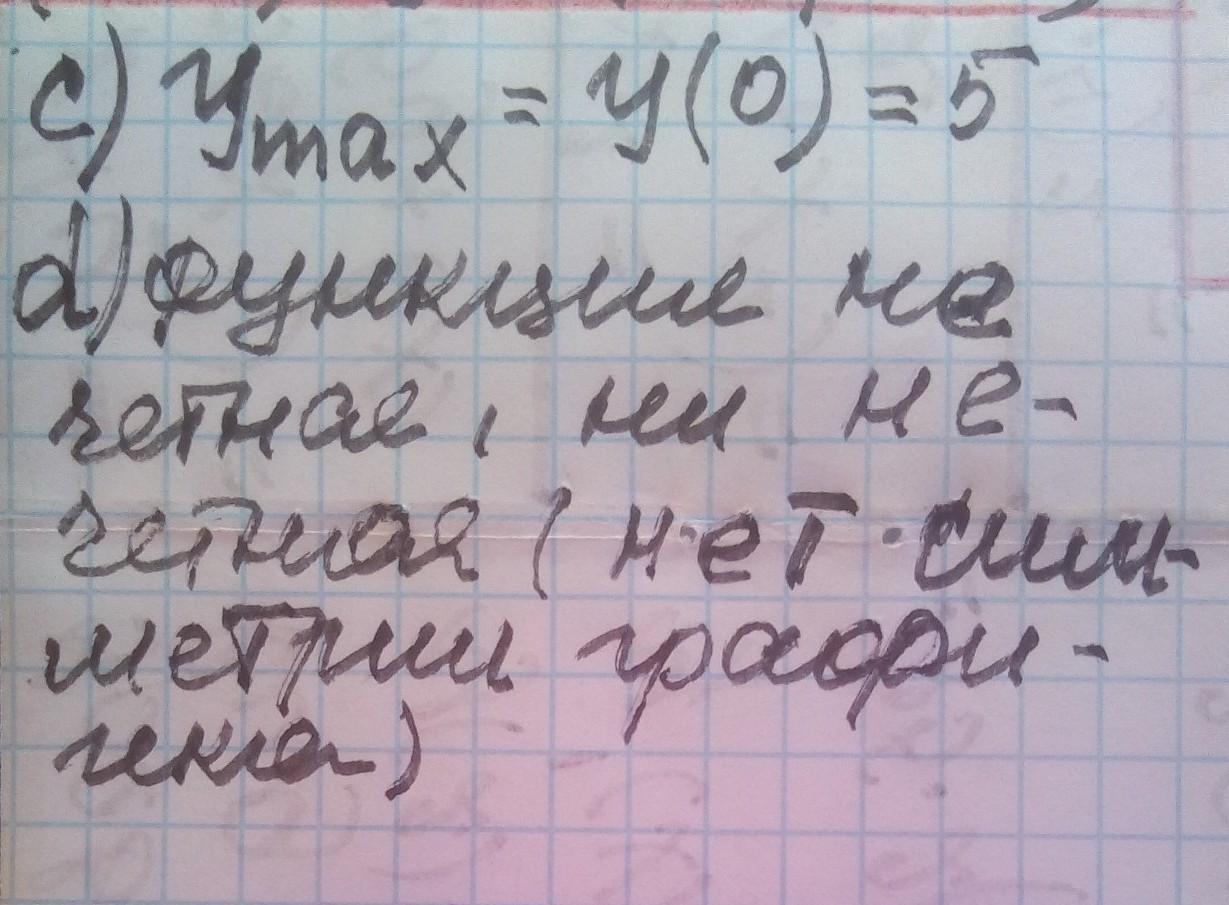 c) Ymax = y(0) = 5
d) функция не
четная, ни не-
четная (нет сим-
метрии графи-
чека)